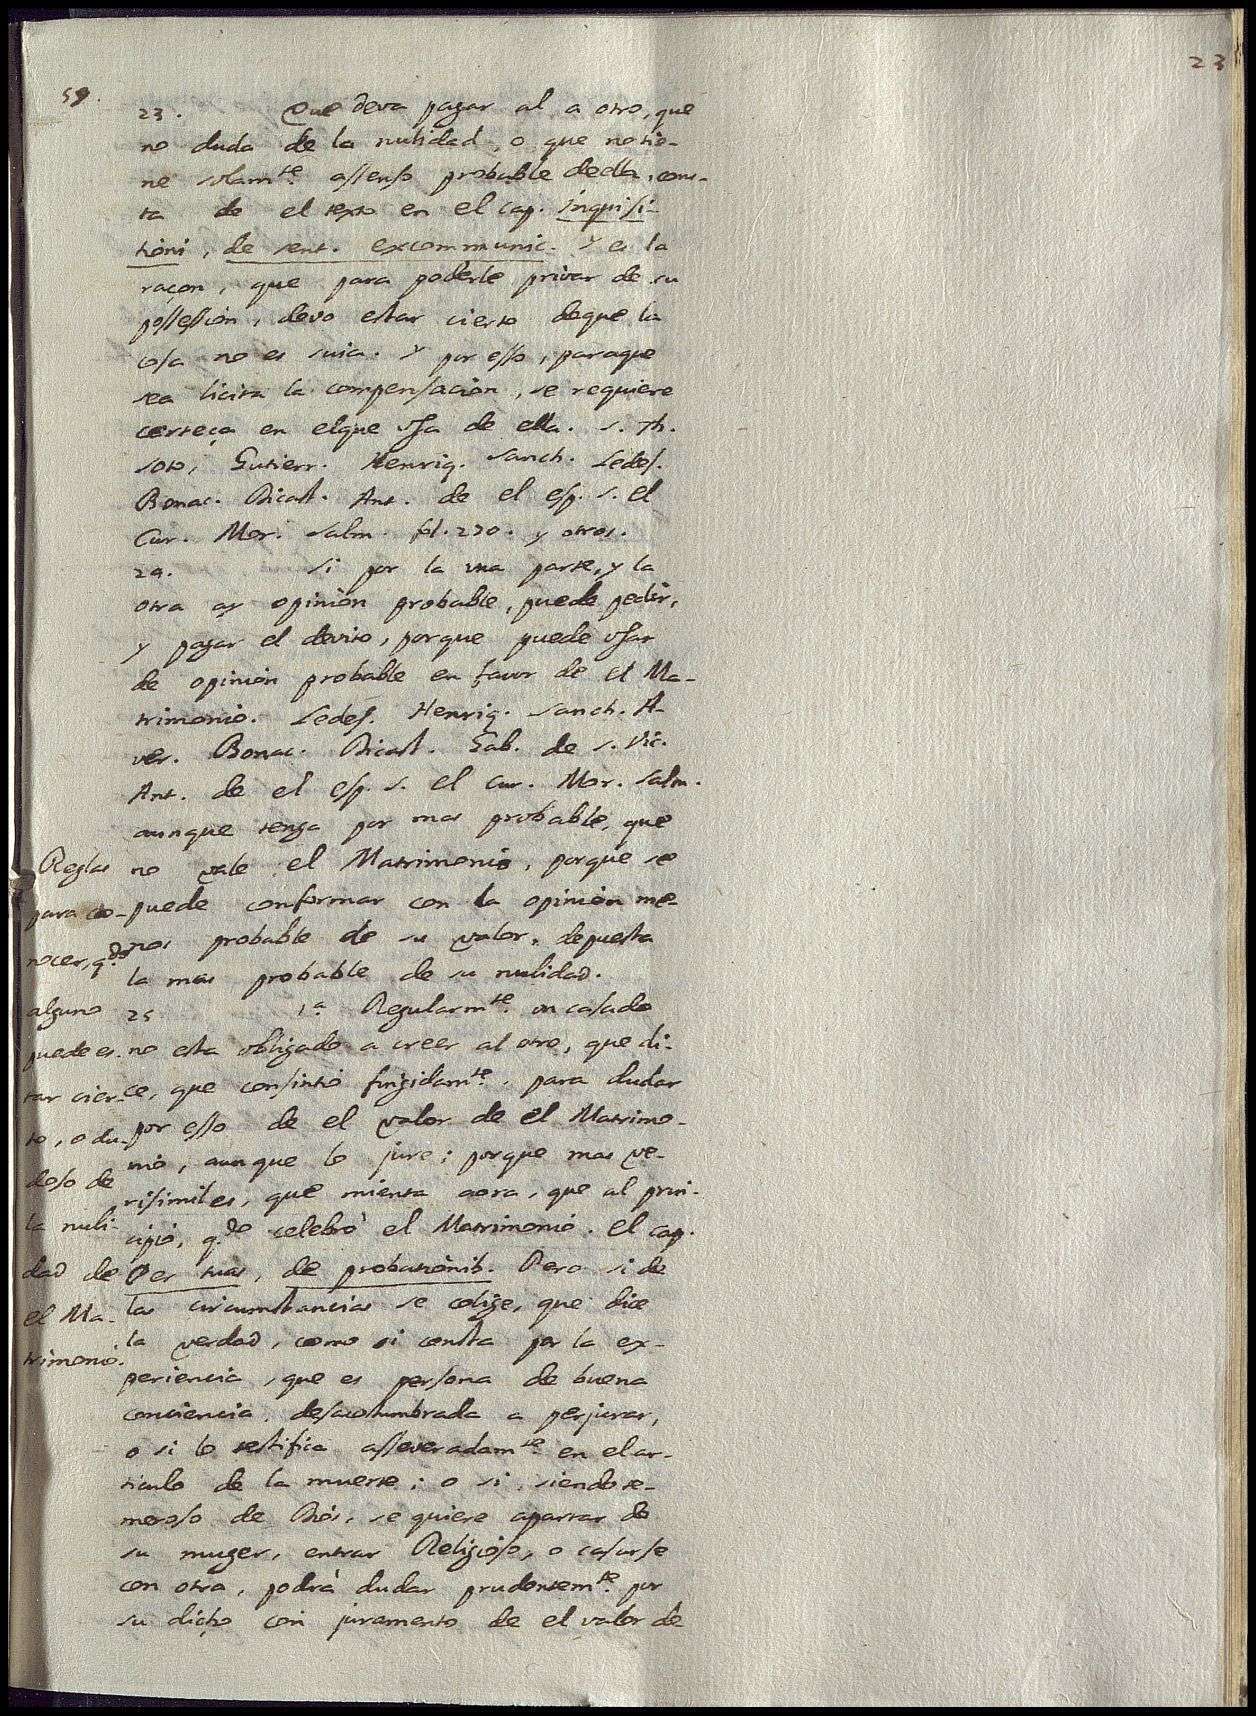 23
59.
23. Que deva pagar al a otro, que
no duda de la nulidad, o que no tie-
ne solamte. assenso probable de ella, cons-
ta de el texto en el cap. Inquisi-
tioni, de sent. excommunic. Y es la
raçon, que para poderle privar de su
possession, devo estar cierto de que la
cosa no es suia. Y por esso, paraque
sea licita la compensacion, se requiere
certeça en elque usa de ella. S. Th.
Soto, Gutierr. Henriq. Sanch. Ledes.
Bonac. Dicast. Ant. de el esp. s. el
Cur. Mor. Salm. fol. 270. y otros.
24. Si por la una parte, y la
otra ay opinion probable, puede pedir,
y pagar el devito, porque puede usar
de opinion probable en favor de el Ma-
trimonio. Ledes. Henriq. Sanch. A-
ver. Bonac. Dicast. Gab. de S. Vic.
Ant. de el esp. s. el Cur. Mor. Salm.
aunque tenga por mas probable, que
no vale el Matrimonio, porque se
puede conformar con la opinion me-
nos probable de su valor, depuesta
la mas probable de su nulidad.
Reglas
para co-
nocer, q.do
alguno
puede es-
tar cier-
to, o du-
doso de
la nuli-
dad de
el Ma-
trimonio.
25 1.a Regularmte. un casado
no esta obligado a creer al otro, que di-
ce, que consintio fingidamte. para dudar
por esso de el valor de el Matrimo-
nio, aunque lo jure; porque mas ve-
risimil es, que mienta aora, que al prin-
cipio, q.do celebró el Matrimonio. el cap.
Per tuas, de probationib. Pero si de
las circumstancias se colige, que dice
la verdad, como si consta por la ex-
periencia, que es persona de buena
conciencia, desacostumbrada a perjurar,
o si lo testifica asseveradamte. en el ar-
ticulo de la muerte; o si, siendo te-
meroso de Dios, se quiere apartar de
su muger, entrar Religioso, o casarse
con otra, podrá dudar prudentemte. por
su dicho con juramento de el valor de